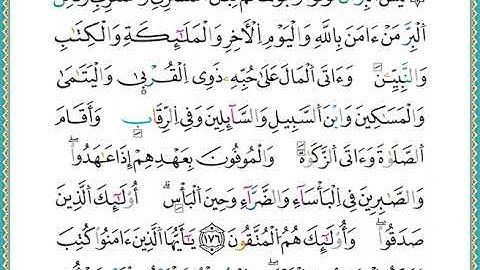 ٱلْبِرَّ مَنْ ءَامَنَ بِٱللَّهِ وَٱلْيَوْمِ ٱلْأَخِرِ وَٱلْمَلَٰٓئِكَةِ وَٱلْكِتَٰبِ
وَٱلنَّبِيِّـۧنَ وَءَاتَى ٱلْمَالَ عَلَىٰ حُبِّهِۦ ذَوِى ٱلْقُرْبَىٰ وَٱلْيَتَٰمَىٰ
وَٱلْمَسَٰكِينَ وَٱبْنَ ٱلسَّبِيلِ وَٱلسَّآئِلِينَ وَفِى ٱلرِّقَابِ وَأَقَامَ
ٱلصَّلَوٰةَ وَءَاتَى ٱلزَّكَوٰةَ وَٱلْمُوفُونَ بِعَهْدِهِمْ إِذَا عَٰهَدُوا۟ ۖ
وَٱلصَّٰبِرِينَ فِى ٱلْبَأْسَآءِ وَٱلضَّرَّآءِ وَحِينَ ٱلْبَأْسِ ۗ أُو۟لَٰٓئِكَ ٱلَّذِينَ
صَدَقُوا۟ ۖ وَأُو۟لَٰٓئِكَ هُمُ ٱلْمُتَّقُونَ ١٧٦ يَٰٓأَيُّهَا ٱلَّذِينَ ءَامَنُوا۟ كُتِبَ